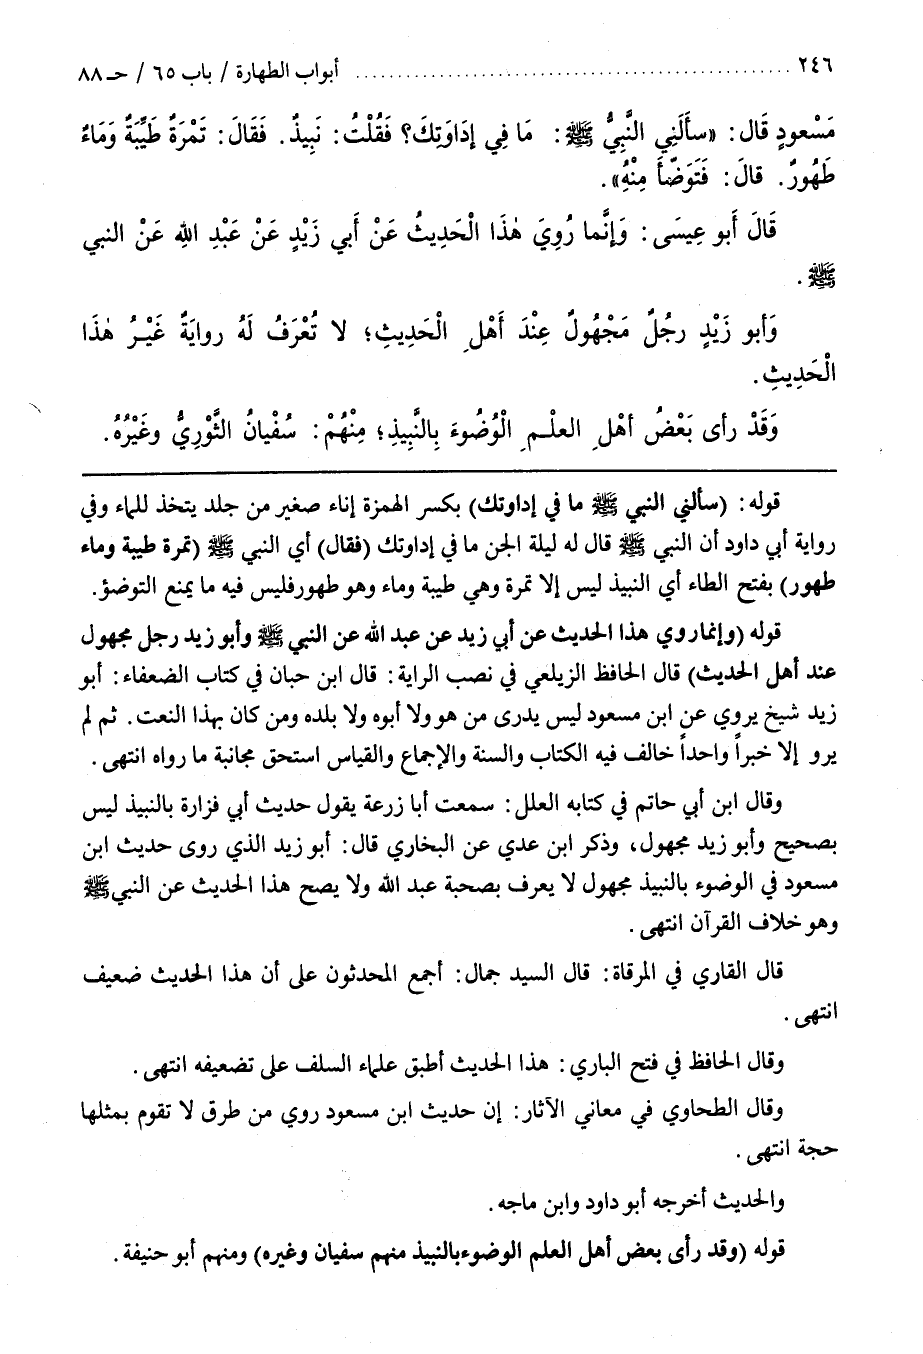 ٢٤٦ ........................................ أبواب الطهارة / باب ٦٥ / حـ ٨٨
مَسْعودٍ قَال: «سألَنِي النَّبِيُّ ﷺ: مَا فِي إدَاوَتِكَ؟ فَقُلْتُ: نَبِيذٌ. فَقَالَ: تَمْرَةٌ طَيِّبَةٌ وَمَاءٌ
طَهُورٌ. قالَ: فَتَوَضَّأَ مِنْهُ».
قَالَ أَبو عِيسَى: وَإنَّما رُوِيَ هٰذَا الْحَدِيثُ عَنْ أبي زَيْدٍ عَنْ عَبْدِ اللهِ عَنْ النبي
ﷺ.
وَأبو زَيْدٍ رجُلٌ مَجْهُولٌ عِنْدَ أَهْلِ الْحَدِيثِ؛ لا تُعْرَفُ لَهُ روايَةٌ غَيْرُ هٰذَا
الْحَدِيثِ.
وَقَدْ رأى بَعْضُ أهْلِ العلْمِ الْوُضُوءَ بِالنَّبِيذِ؛ مِنْهُمْ: سُفْيانُ الثَّوْرِيُّ وغَيْرُهُ.
قوله: (سألني النبي ﷺ ما في إداوتك) بكسر الهمزة إناء صغير من جلد يتخذ للماء وفي
رواية أبي داود أن النبي ﷺ قال له ليلة الجن ما في إداوتك (فقال) أي النبي ﷺ (تمرة طيبة وماء
طهور) بفتح الطاء أي النبيذ ليس إلا تمرة وهي طيبة وماء وهو طهور فليس فيه ما يمنع التوضؤ.
قوله (وإنما روي هذا الحديث عن أبي زيد عن عبد الله عن النبي ﷺ وأبو زيد رجل مجهول
عند أهل الحديث) قال الحافظ الزيلعي في نصب الراية: قال ابن حبان في كتاب الضعفاء: أبو
زيد شيخ يروي عن ابن مسعود ليس يدرى من هو ولا أبوه ولا بلده ومن كان بهذا النعت. ثم لم
يرو إلا خبراً واحداً خالف فيه الكتاب والسنة والإجماع والقياس استحق مجانبة ما رواه انتهى.
وقال ابن أبي حاتم في كتابه العلل: سمعت أبا زرعة يقول حديث أبي فزارة بالنبيذ ليس
بصحيح وأبو زيد مجهول، وذكر ابن عدي عن البخاري قال: أبو زيد الذي روى حديث ابن
مسعود في الوضوء بالنبيذ مجهول لا يعرف بصحبة عبد الله ولا يصح هذا الحديث عن النبي ﷺ
وهو خلاف القرآن انتهى.
قال القاري في المرقاة: قال السيد جمال: أجمع المحدثون على أن هذا الحديث ضعيف
انتهى.
وقال الحافظ في فتح الباري: هذا الحديث أطبق علماء السلف على تضعيفه انتهى.
وقال الطحاوي في معاني الآثار: إن حديث ابن مسعود روي من طرق لا تقوم بمثلها
حجة انتهى.
والحديث أخرجه أبو داود وابن ماجه.
قوله (وقد رأى بعض أهل العلم الوضوء بالنبيذ منهم سفيان وغيره) ومنهم أبو حنيفة.